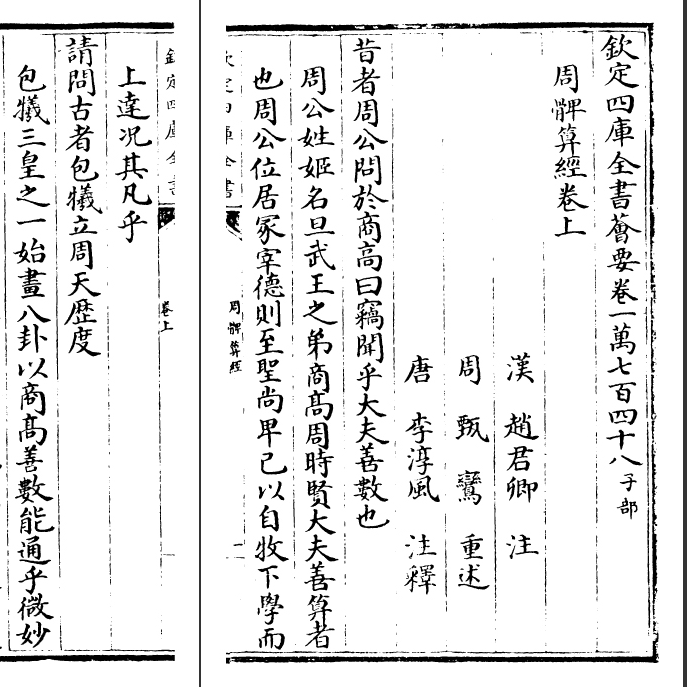 欽定四庫全書薈要卷一萬七百四十八子部
周髀算經卷上
漢 趙君卿 注
周 甄鸞 重述
唐 李淳風 注釋
昔者周公問於商高曰竊聞乎大夫善數也
周公姓姬名旦武王之弟商髙周時賢大夫善算者
也周公位居冡宰德則至聖尚卑己以自牧下學而
周髀算經
欽定四庫全書
卷上
上達况其凡乎
請問古者包犧立周天歴度
包犧三皇之一始畫八卦以商髙善數能通乎微妙